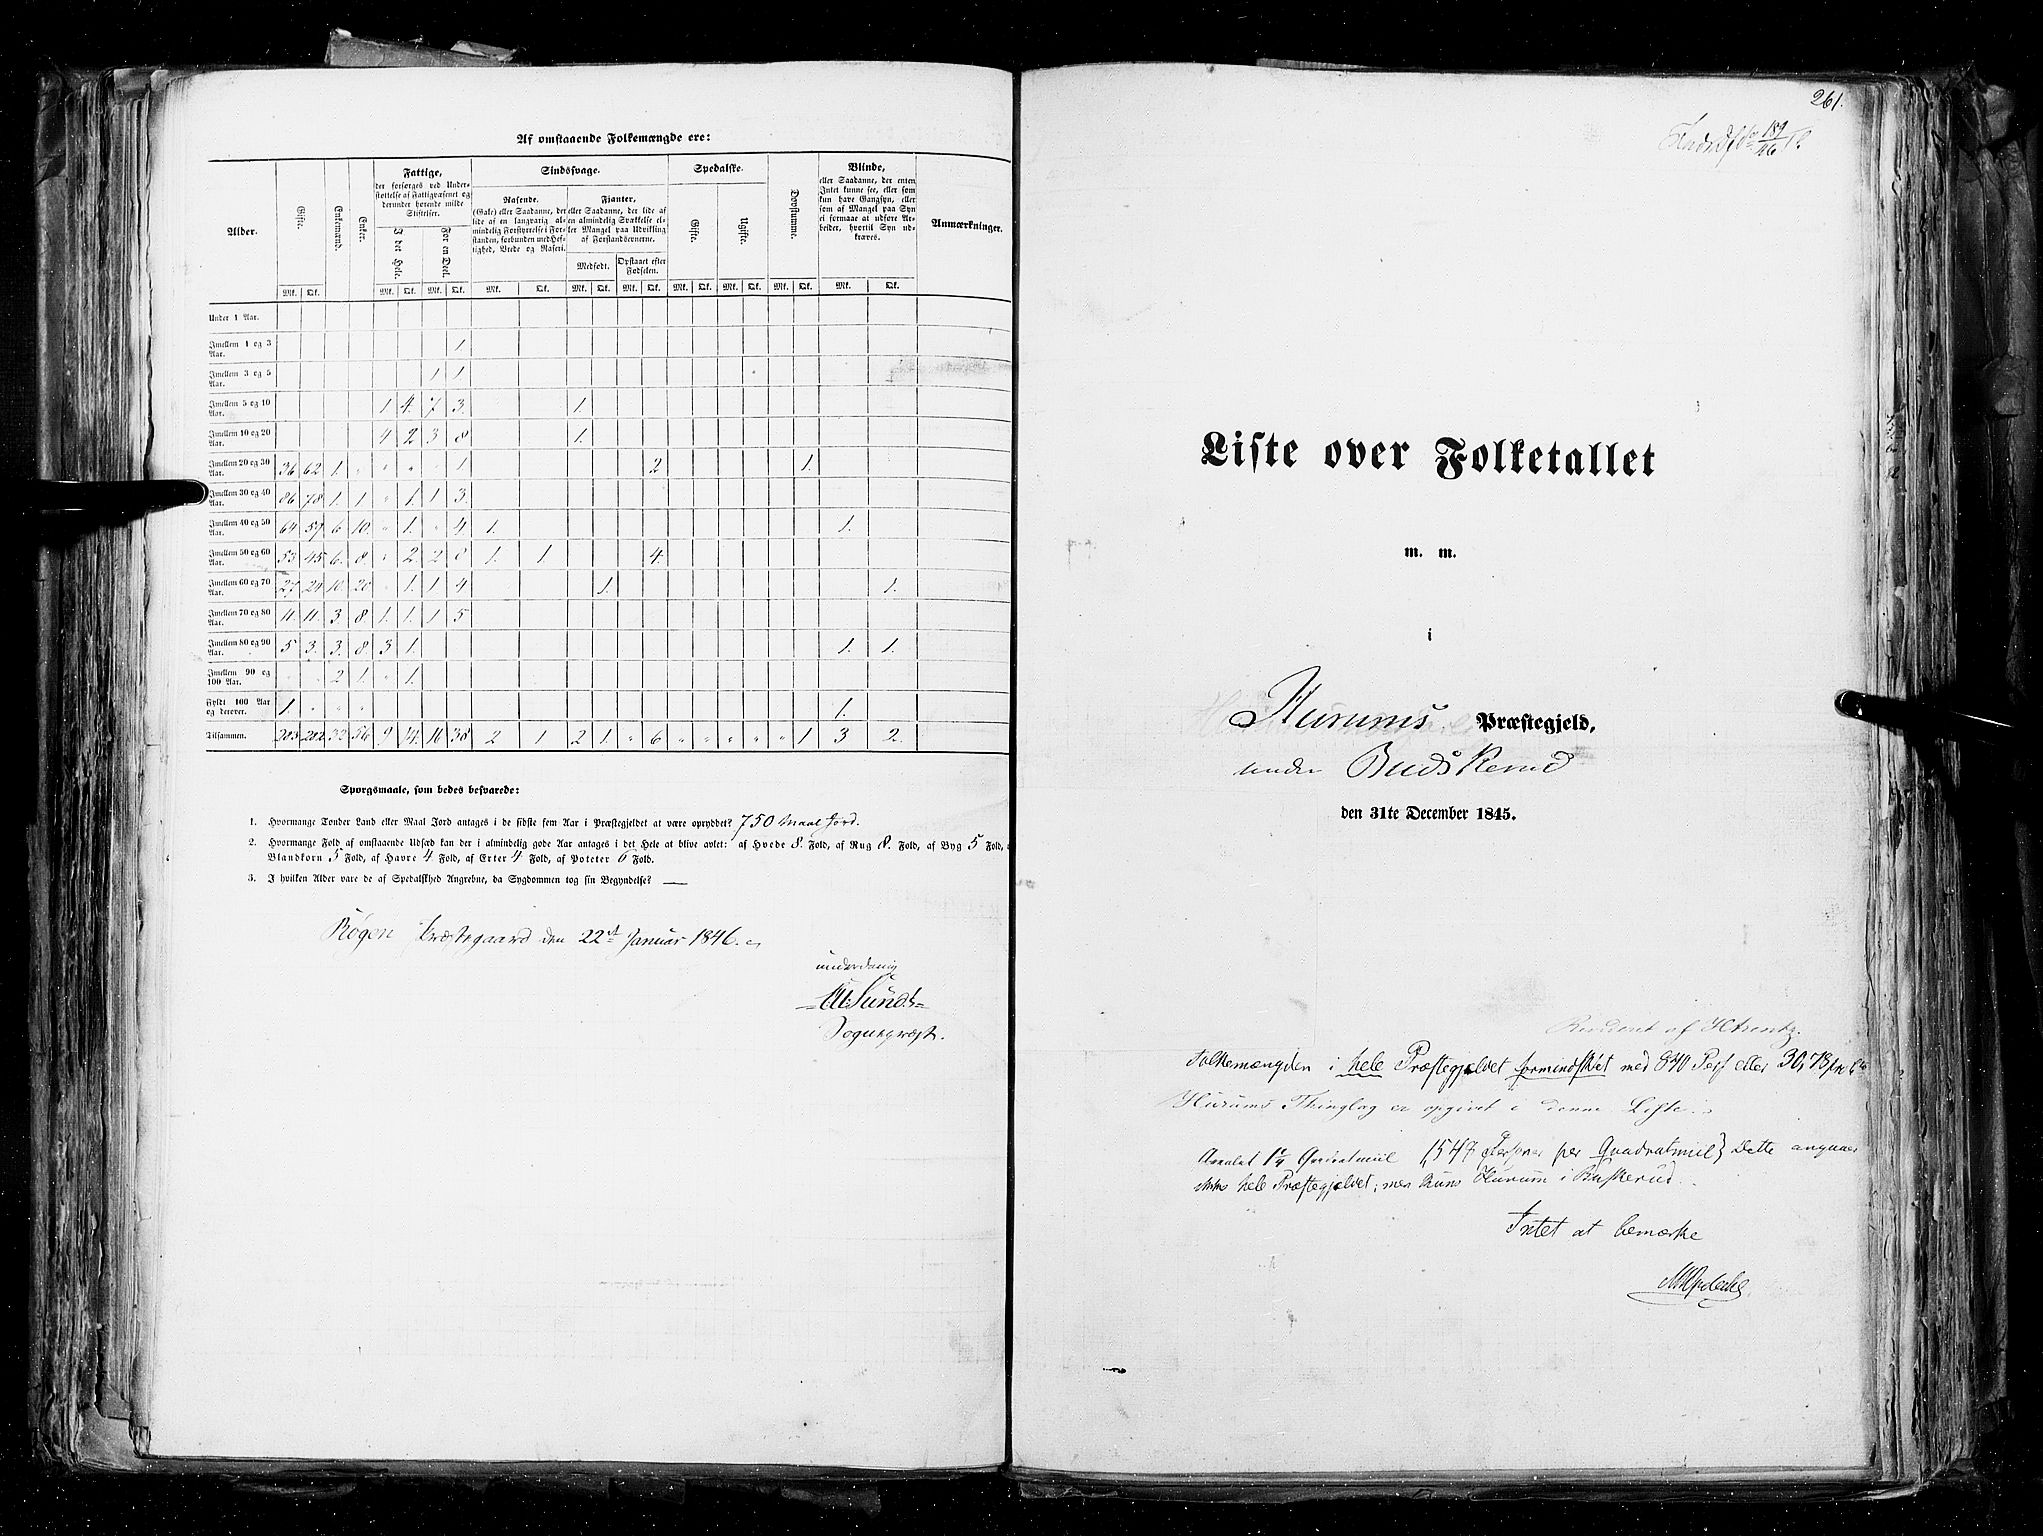 Af omstaaende Folkemængde ere:
Alder. Gifte. Enkemænd. Enker. Fattige, Sindssvage. Spedalske. Døvstumme. Blinde, Anmærkninger.
der forsørges ved Under-
støttelse af Fattigvæsenet og
derunder hørende milde
Stiftelser.
I det Hele. For en Deel.
Rasende.
(Gale) eller Saadanne, der
lide af en langvarig al-
mindelig Forstyrrelse i For-
standen, forbunden med Hef-
tighed, Vrede og Raseri.
Fjanter,
eller Saadanne, der lide af
en almindelig Svækkelse el-
ler Mangel paa Udvikling
af Forstandsevnerne.
Medfødt. Opstaaet efter Fødselen.
Gifte. Ugifte.
eller Saadanne, der enten
Intet kunne see, eller som
kun have Gangsyn, eller
som af Mangel paa Syn
ei formaae at udføre Ar-
beider, hvortil Syn ud-
kræves.
Mk. Qk. Mk. Qk. Mk. Qk. Mk. Qk. Mk. Qk. Mk. Qk. Mk. Qk. Mk. Qk. Mk. Qk. Mk. Qk.
Under 1 Aar.
Imellem 1 og 3 Aar. 1
Imellem 3 og 5 Aar. 1 1
Imellem 5 og 10 Aar. 1 4. 7 3. 1.
Imellem 10 og 20 Aar. 4 2 3 8 1.
Imellem 20 og 30 Aar. 36 62 1. " " " " 1 2 1.
Imellem 30 og 40 Aar. 86 78 1. 1 " 1. 1 3.
Imellem 40 og 50 Aar. 64 57 6 10. " 1. " 4 1. 1.
Imellem 50 og 60 Aar. 53 45 6. 8. " 2. 2 8 1. 1. 4.
Imellem 60 og 70 Aar. 27 24 10. 20 " 1. 1 4 1. 1.
Imellem 70 og 80 Aar. 11. 11. 3 8 1. 1. 1 5
Imellem 80 og 90 Aar. 5 3. 3. 8 3 1. 1. 1.
Imellem 90 og 100 Aar. " " 2 1. " 1.
Fyldt 100 Aar og derover. 1. " " " 1.
Tilsammen. 283 282 32 56 9 14. 16 38 2 1 2 1. " 6 " " " " " 1 3 2.
Spørgsmaale, som bedes besvarede:
1. Hvormange Tønder Land eller Maal Jord antages i de sidste fem Aar i Præstegjeldet at være opryddet? 750 Maal Jord.
2. Hvormange Fold af omstaaende Udsæd kan der i almindelig gode Aar antages i det Hele at blive avlet: af Hvede 8. Fold, af Rug 8. Fold, af Byg 5 Fold, a
Blandkorn 5 Fold, af Havre 4 Fold, af Erter 4 Fold, af Poteter 6 Fold.
3. I hvilken Alder vare de af Spedalskhed Angrebne, da Sygdommen tog sin Begyndelse? —
Røgen Præstegaard den 22de Januar 1846.
underdanig
Sund
Sognepræst.
261.
189/46
Liste over Folketallet
m. m.
i
Hurums Præstegjeld,
under Budskerud
den 31te December 1845.
Revideret af
Folkemængden i hele Præstegjeldet formindsket med 840 Pers eller 30,73 pr Cto
Hurums Thinglag er opgivet i denne Liste.
Arealet 1 1/4 Qvadratmiil (1547 Personer per Quadratmiil) Dette angaaer
hele Præstegjeldet; men kuns Hurum i Buskerud.
Intet at bemærke